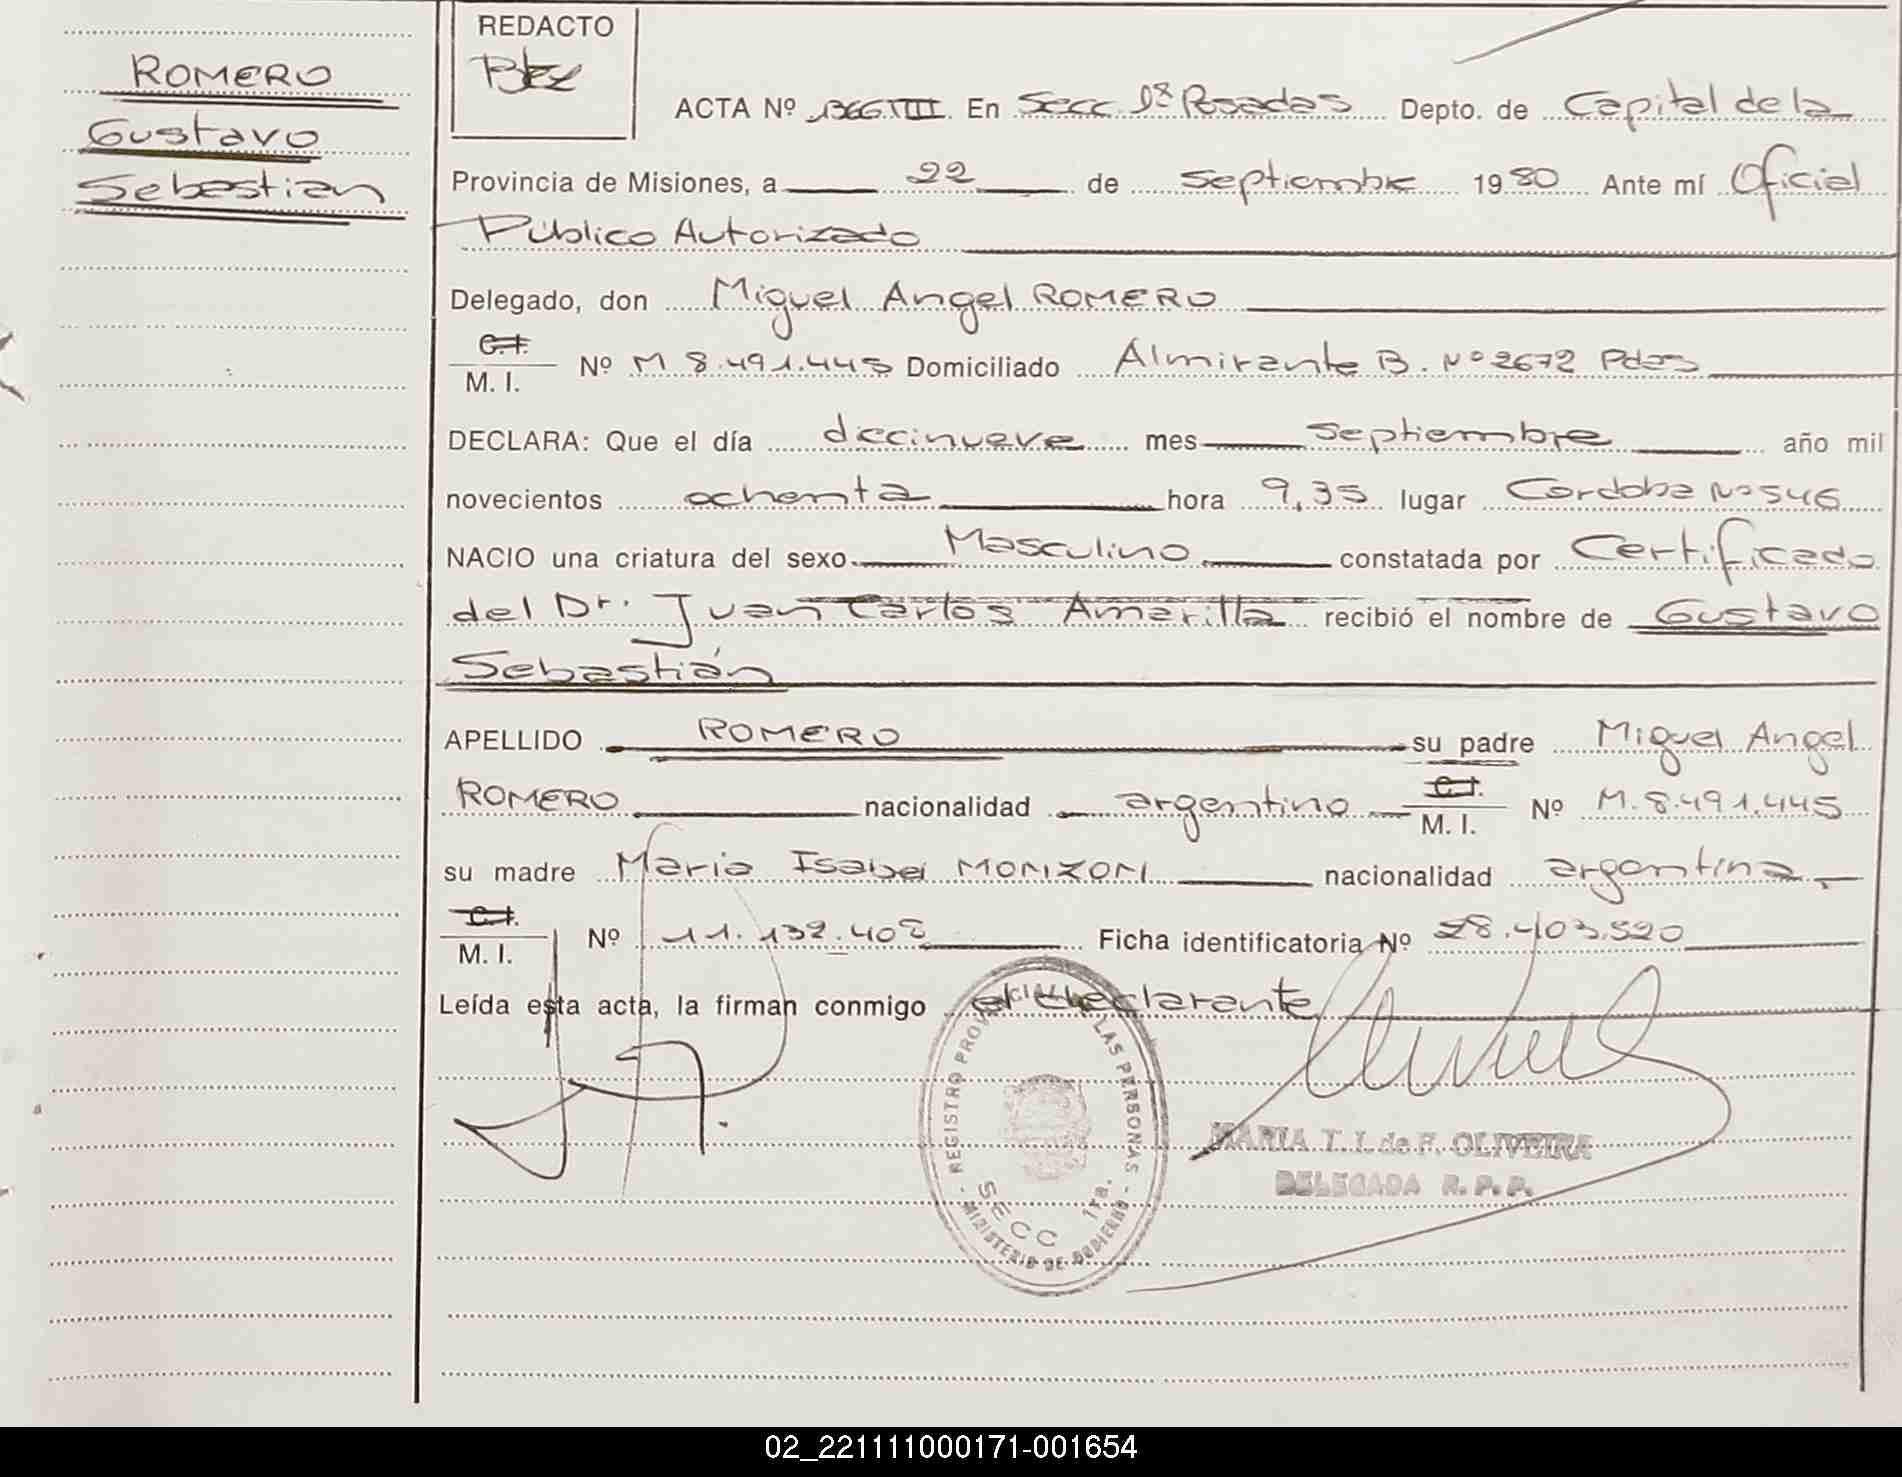 ROMERO
Gustavo
Sebastian
REDACTO
ACTA Nº 1366.VIII. En Secc. 1ª Posadas Depto. de Capital de la
Provincia de Misiones, a 22 de septiembre 1980 Ante mí Oficial
Público Autorizado
Delegado, don Miguel Angel ROMERO
C.I.
M. I. Nº M 8.491.445 Domiciliado Almirante B. Nº 2672 Pdas
DECLARA: Que el día diecinueve mes septiembre año mil
novecientos ochenta hora 9,35 lugar Cordoba Nº 546
NACIO una criatura del sexo Masculino constatada por Certificado
del Dr. Juan Carlos Amarilla recibió el nombre de Gustavo
Sebastián
APELLIDO ROMERO su padre Miguel Angel
ROMERO nacionalidad argentino C.I. M. I. Nº M. 8.491.445
su madre Maria Isabel MONZON nacionalidad argentina
C.I.
M. I. Nº 11.132.408 Ficha identificatoria Nº 28.403.520
Leída esta acta, la firman conmigo el declarante
REGISTRO PROVINCIAL DE LAS PERSONAS
SECC 1ra.
MINISTERIO DE GOBIERNO
MARIA T. I. de F. OLIVEIRA
DELEGADA R. P. P.
02_221111000171-001654